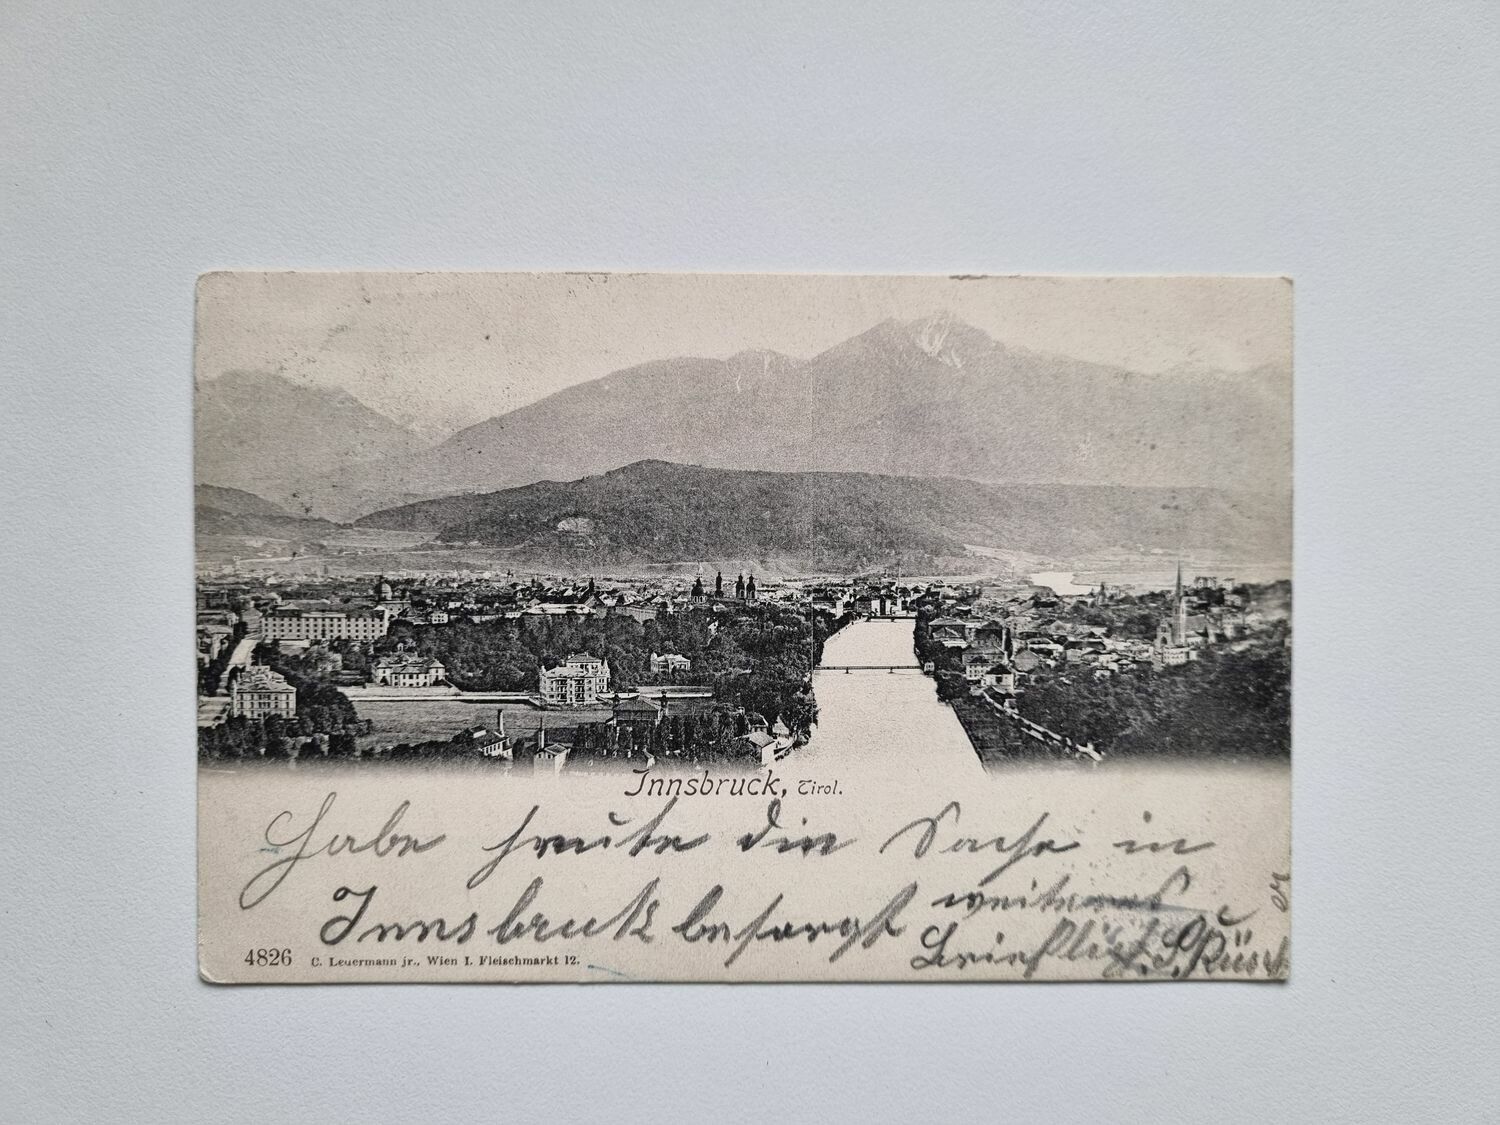 Innsbruck, Tirol.
Habe heute die Sache in
Innsbruck besorgt weiteres
Brieflich.
4826 C. Leuermann jr., Wien I. Fleischmarkt 12.